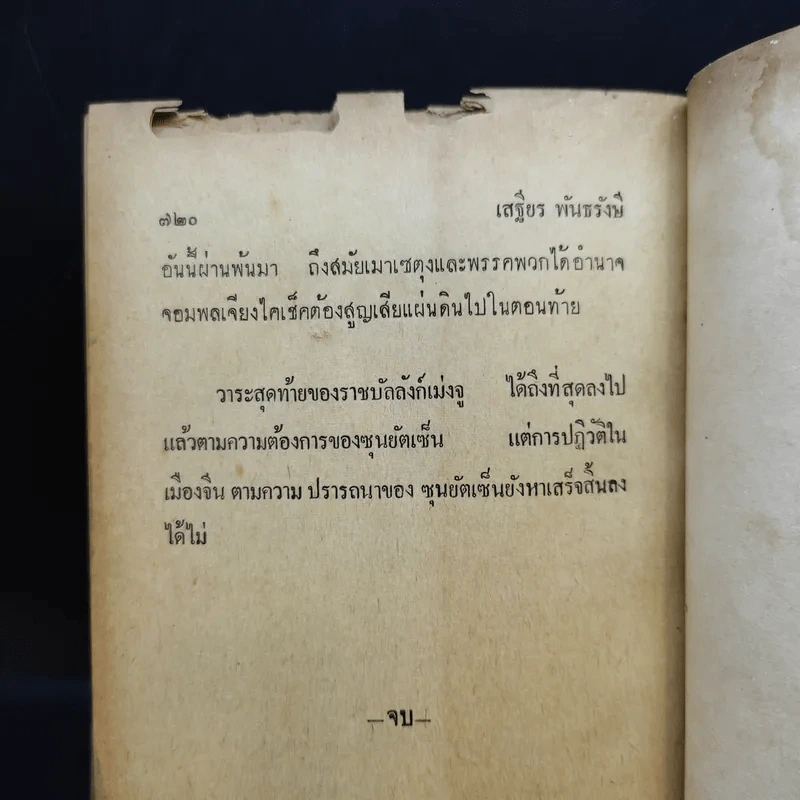 ๗๒๐ เสฐียร พันธรังษี
อันนี้ผ่านพ้นมา ถึงสมัยเมาเซตุงและพรรคพวกได้อำนาจ
จอมพลเจียงไคเช็คต้องสูญเสียแผ่นดินไปในตอนท้าย
วาระสุดท้ายของราชบัลลังก์เม่งจู ได้ถึงที่สุดลงไป
แล้วตามความต้องการของซุนยัตเซ็น แต่การปฏิวัติใน
เมืองจีน ตามความ ปรารถนาของ ซุนยัตเซ็นยังหาเสร็จสิ้นลง
ได้ไม่
—จบ—